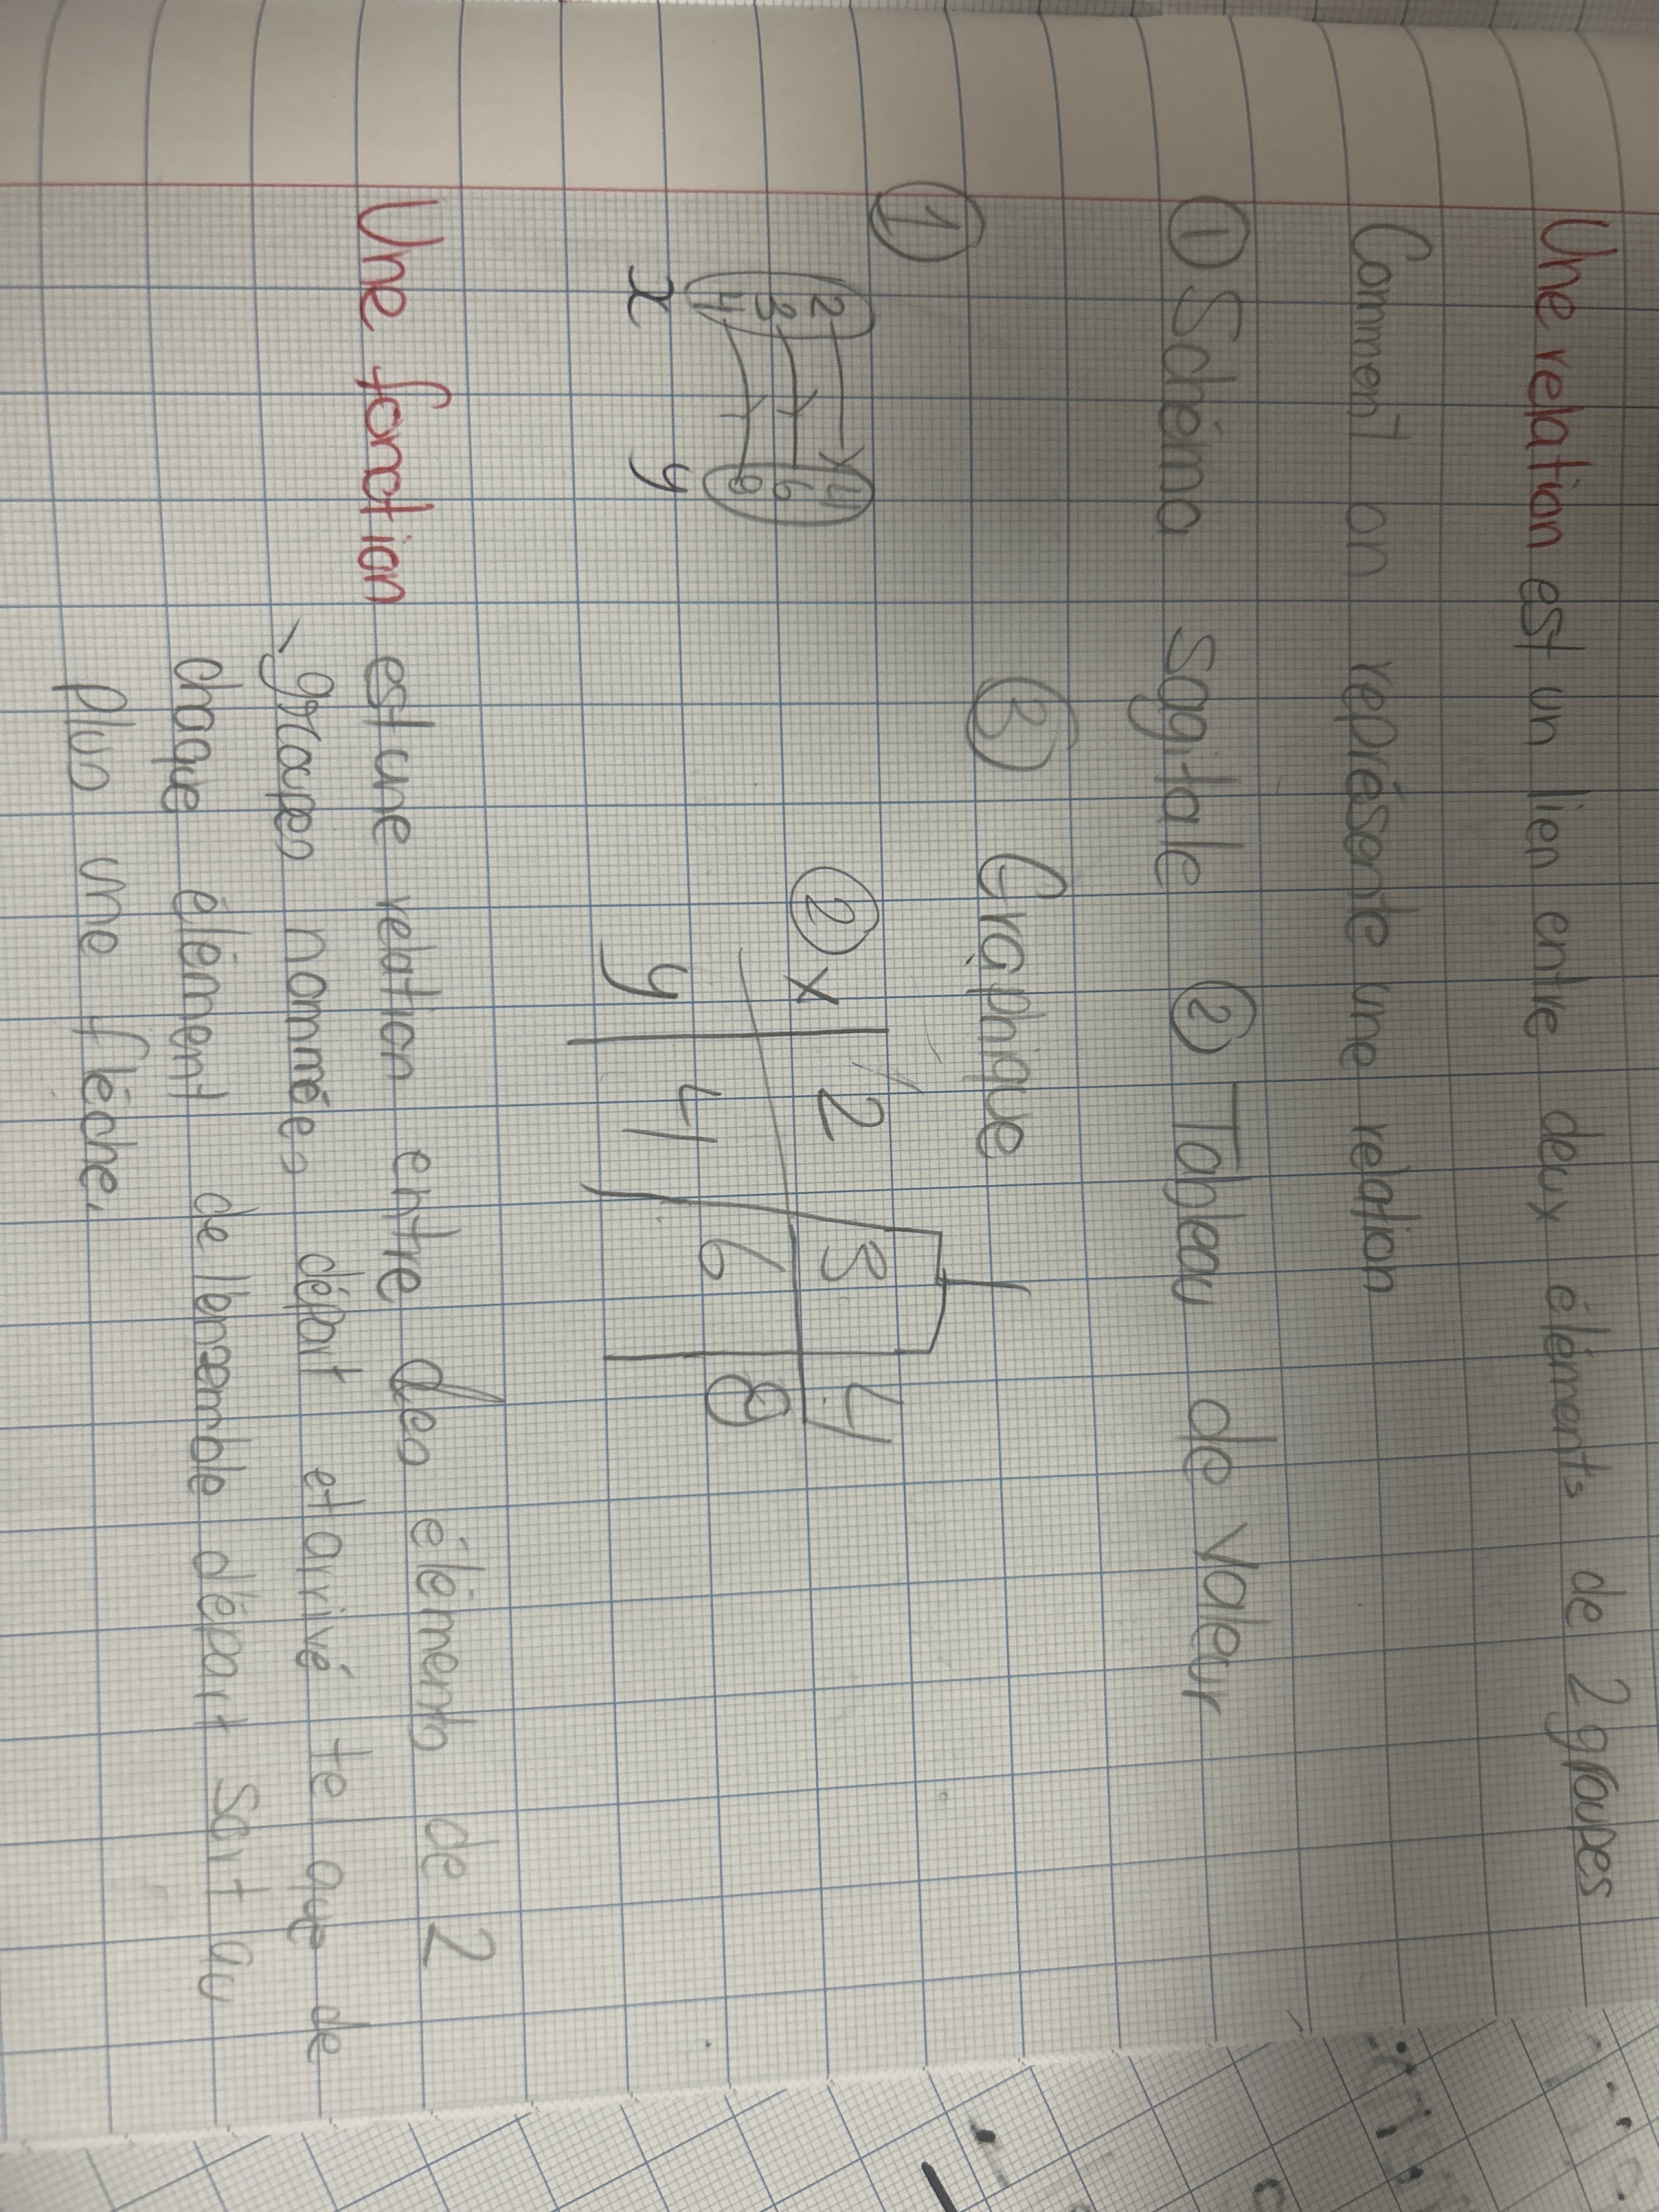 Une relation est un lien entre deux éléments de 2 groupes
Comment on représente une relation
① Schéma Sagitale ② Tableau de Valeur
③ Graphique
①
2 4
3 6
4 8
x y
② x 2 3 4
y 4 6 8
Une fonction est une relation entre des éléments de 2
groupes nommées départ et arivé tel que de
chaque élément de l'ensemble départ Soit au
plus une fléche.